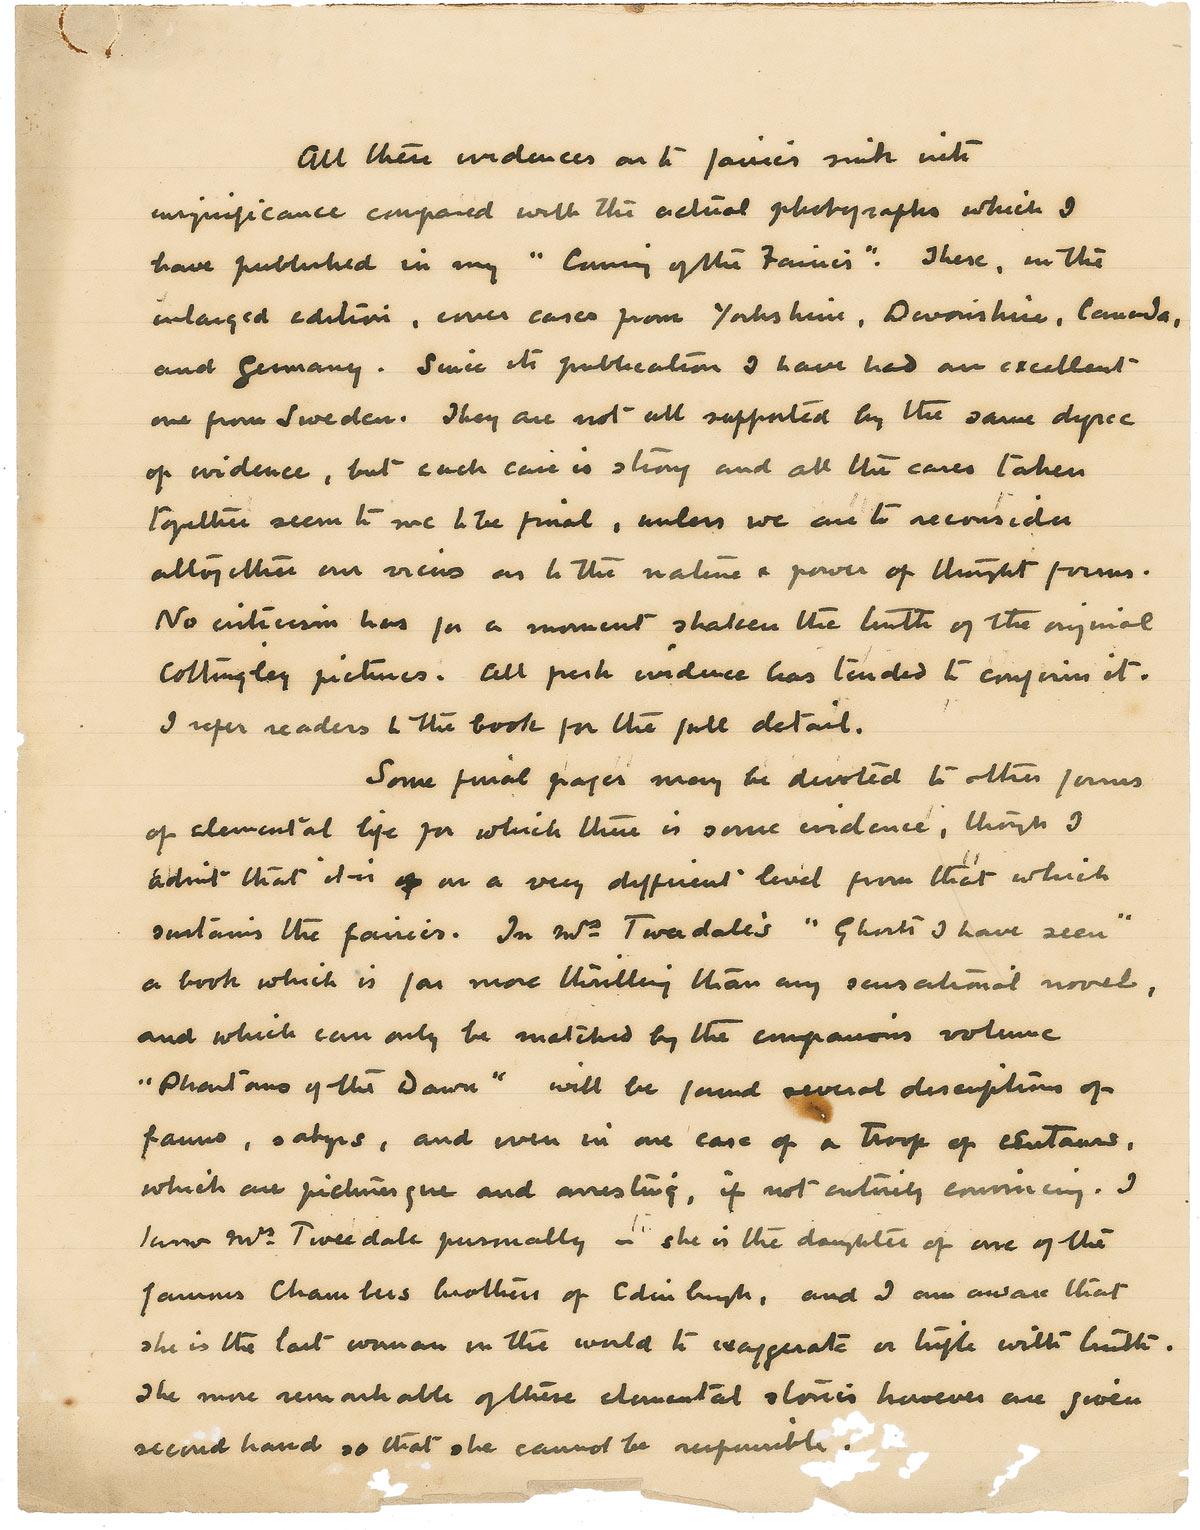 All these evidences as to fairies sink into
insignificance compared with the actual photographs which I
have published in my "Coming of the Fairies". These, in the
enlarged edition, cover cases from Yorkshire, Devonshire, Canada,
and Germany. Since its publication I have had an excellent
one from Sweden. They are not all supported by the same degree
of evidence, but each case is strong and all the cases taken
together seem to me to be final, unless we are to reconsider
altogether our views as to the nature & power of thought forms.
No criticism has for a moment shaken the truth of the original
Cottingley pictures. All fresh evidence has tended to confirm it.
I refer readers to the book for the full detail.
Some final pages may be devoted to other forms
of elemental life for which there is some evidence, though I
admit that it is on a very different level from that which
sustains the fairies. In Mrs Tweedale's "Ghosts I have seen"
a book which is far more thrilling than any sensational novel,
and which can only be matched by the companion volume
"Phantoms of the Dawn" will be found several descriptions of
fauns, satyrs, and even in one case of a troop of centaurs,
which are picturesque and arresting, if not entirely convincing. I
know Mrs Tweedale personally - she is the daughter of one of the
famous Chambers brothers of Edinburgh, and I am aware that
she is the last woman in the world to exaggerate or trifle with truth.
The more remarkable of these elemental stories however are given
second hand so that she cannot be responsible.